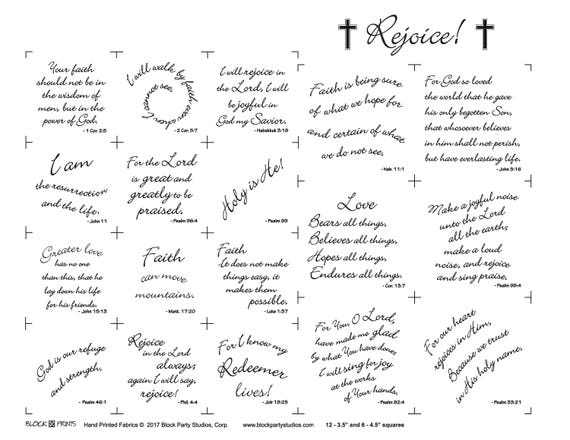 Rejoice!
Your faith
should not be in
the wisdom of
men, but in the
power of God.
- 1 Cor. 2:5
I will walk by faith even when I cannot see.
- 2 Cor. 5:7
I will rejoice in
the Lord, I will
be joyful in
God my Savior.
- Habakkuk 3:18
Faith is being sure
of what we hope for
and certain of what
we do not see.
- Heb. 11:1
For God so loved
the world that he gave
his only begotten Son,
that whosoever believes
in him shall not perish,
but have everlasting life.
- John 3:16
I am
the resurrection
and the life.
- John 11
For the Lord
is great and
greatly to be
praised.
- Psalm 96:4
Holy is He!
- Psalm 99
Love
Bears all things,
Believes all things,
Hopes all things,
Endures all things.
- Cor. 13:7
Make a joyful noise
unto the Lord
all the earth;
make a loud
noise, and rejoice
and sing praise.
- Psalm 98:4
Greater love
has no one
than this; that he
lay down his life
for his friends.
- John 15:13
Faith
can move
mountains.
- Matt. 17:20
Faith
It does not make
things easy, it
makes them
possible.
- Luke 1:37
God is our refuge
and strength.
- Psalm 46:1
Rejoice
in the Lord
always;
again I will say,
rejoice!
- Phil. 4:4
For I know my
Redeemer
lives!
- Job 19:25
For You, O Lord,
have made me glad
by what You have done,
I will sing for joy
at the works
of Your hands.
- Psalm 92:4
For our heart
rejoices in Him,
Because we trust
in His holy name.
- Psalm 33:21
BLOCK PRINTS Hand Printed Fabrics © 2017 Block Party Studios, Corp. www.blockpartystudios.com 12 - 3.5" and 6 - 4.5" squares